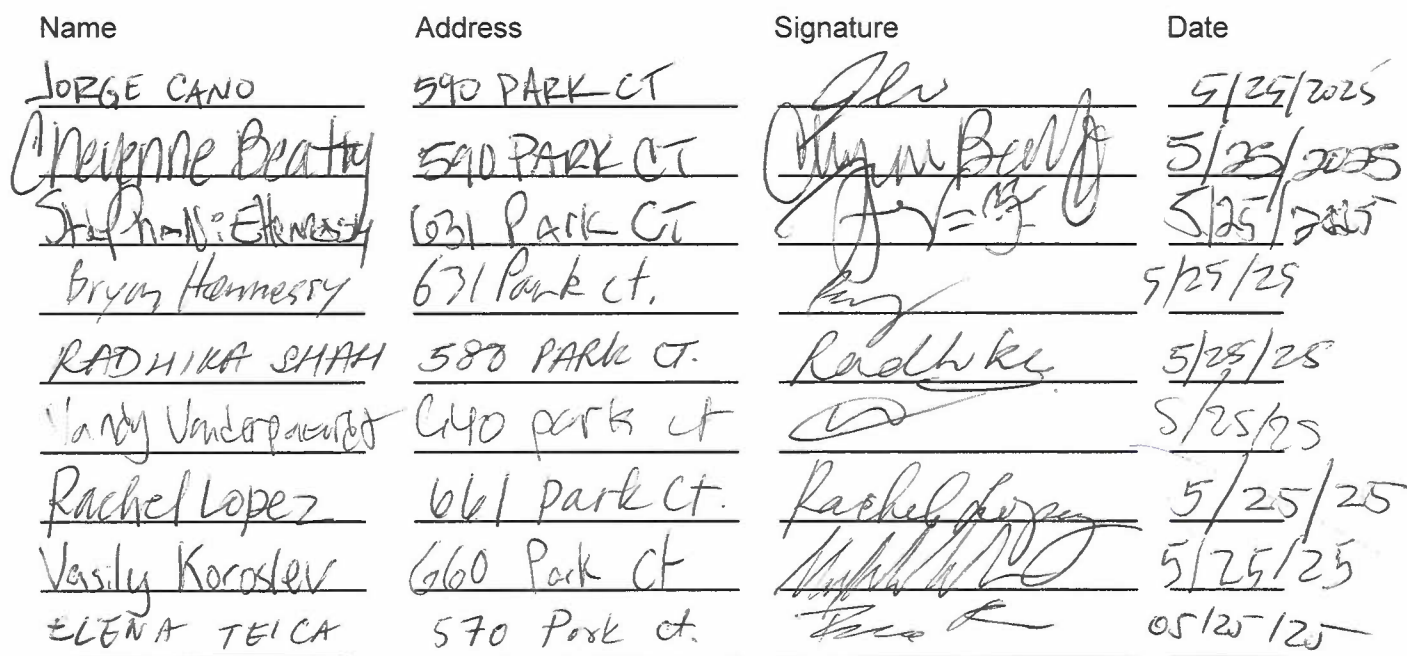 Name Address Signature Date
JORGE CANO 590 PARK CT 5/25/2025
Cheyenne Beatty 590 PARK CT 5/25/2025
Stephanie Hennessy 631 Park CT 5/25/2025
Bryan Hennessy 631 Park ct. 5/25/25
RADHIKA SHAH 580 PARK CT. Radhika 5/25/25
640 park ct 5/25/25
Rachel Lopez 661 park Ct. Rachel Lopez 5/25/25
Vasily Korostev 660 Park Ct 5/25/25
ELENA TEICA 570 Park ct. 05/25/25